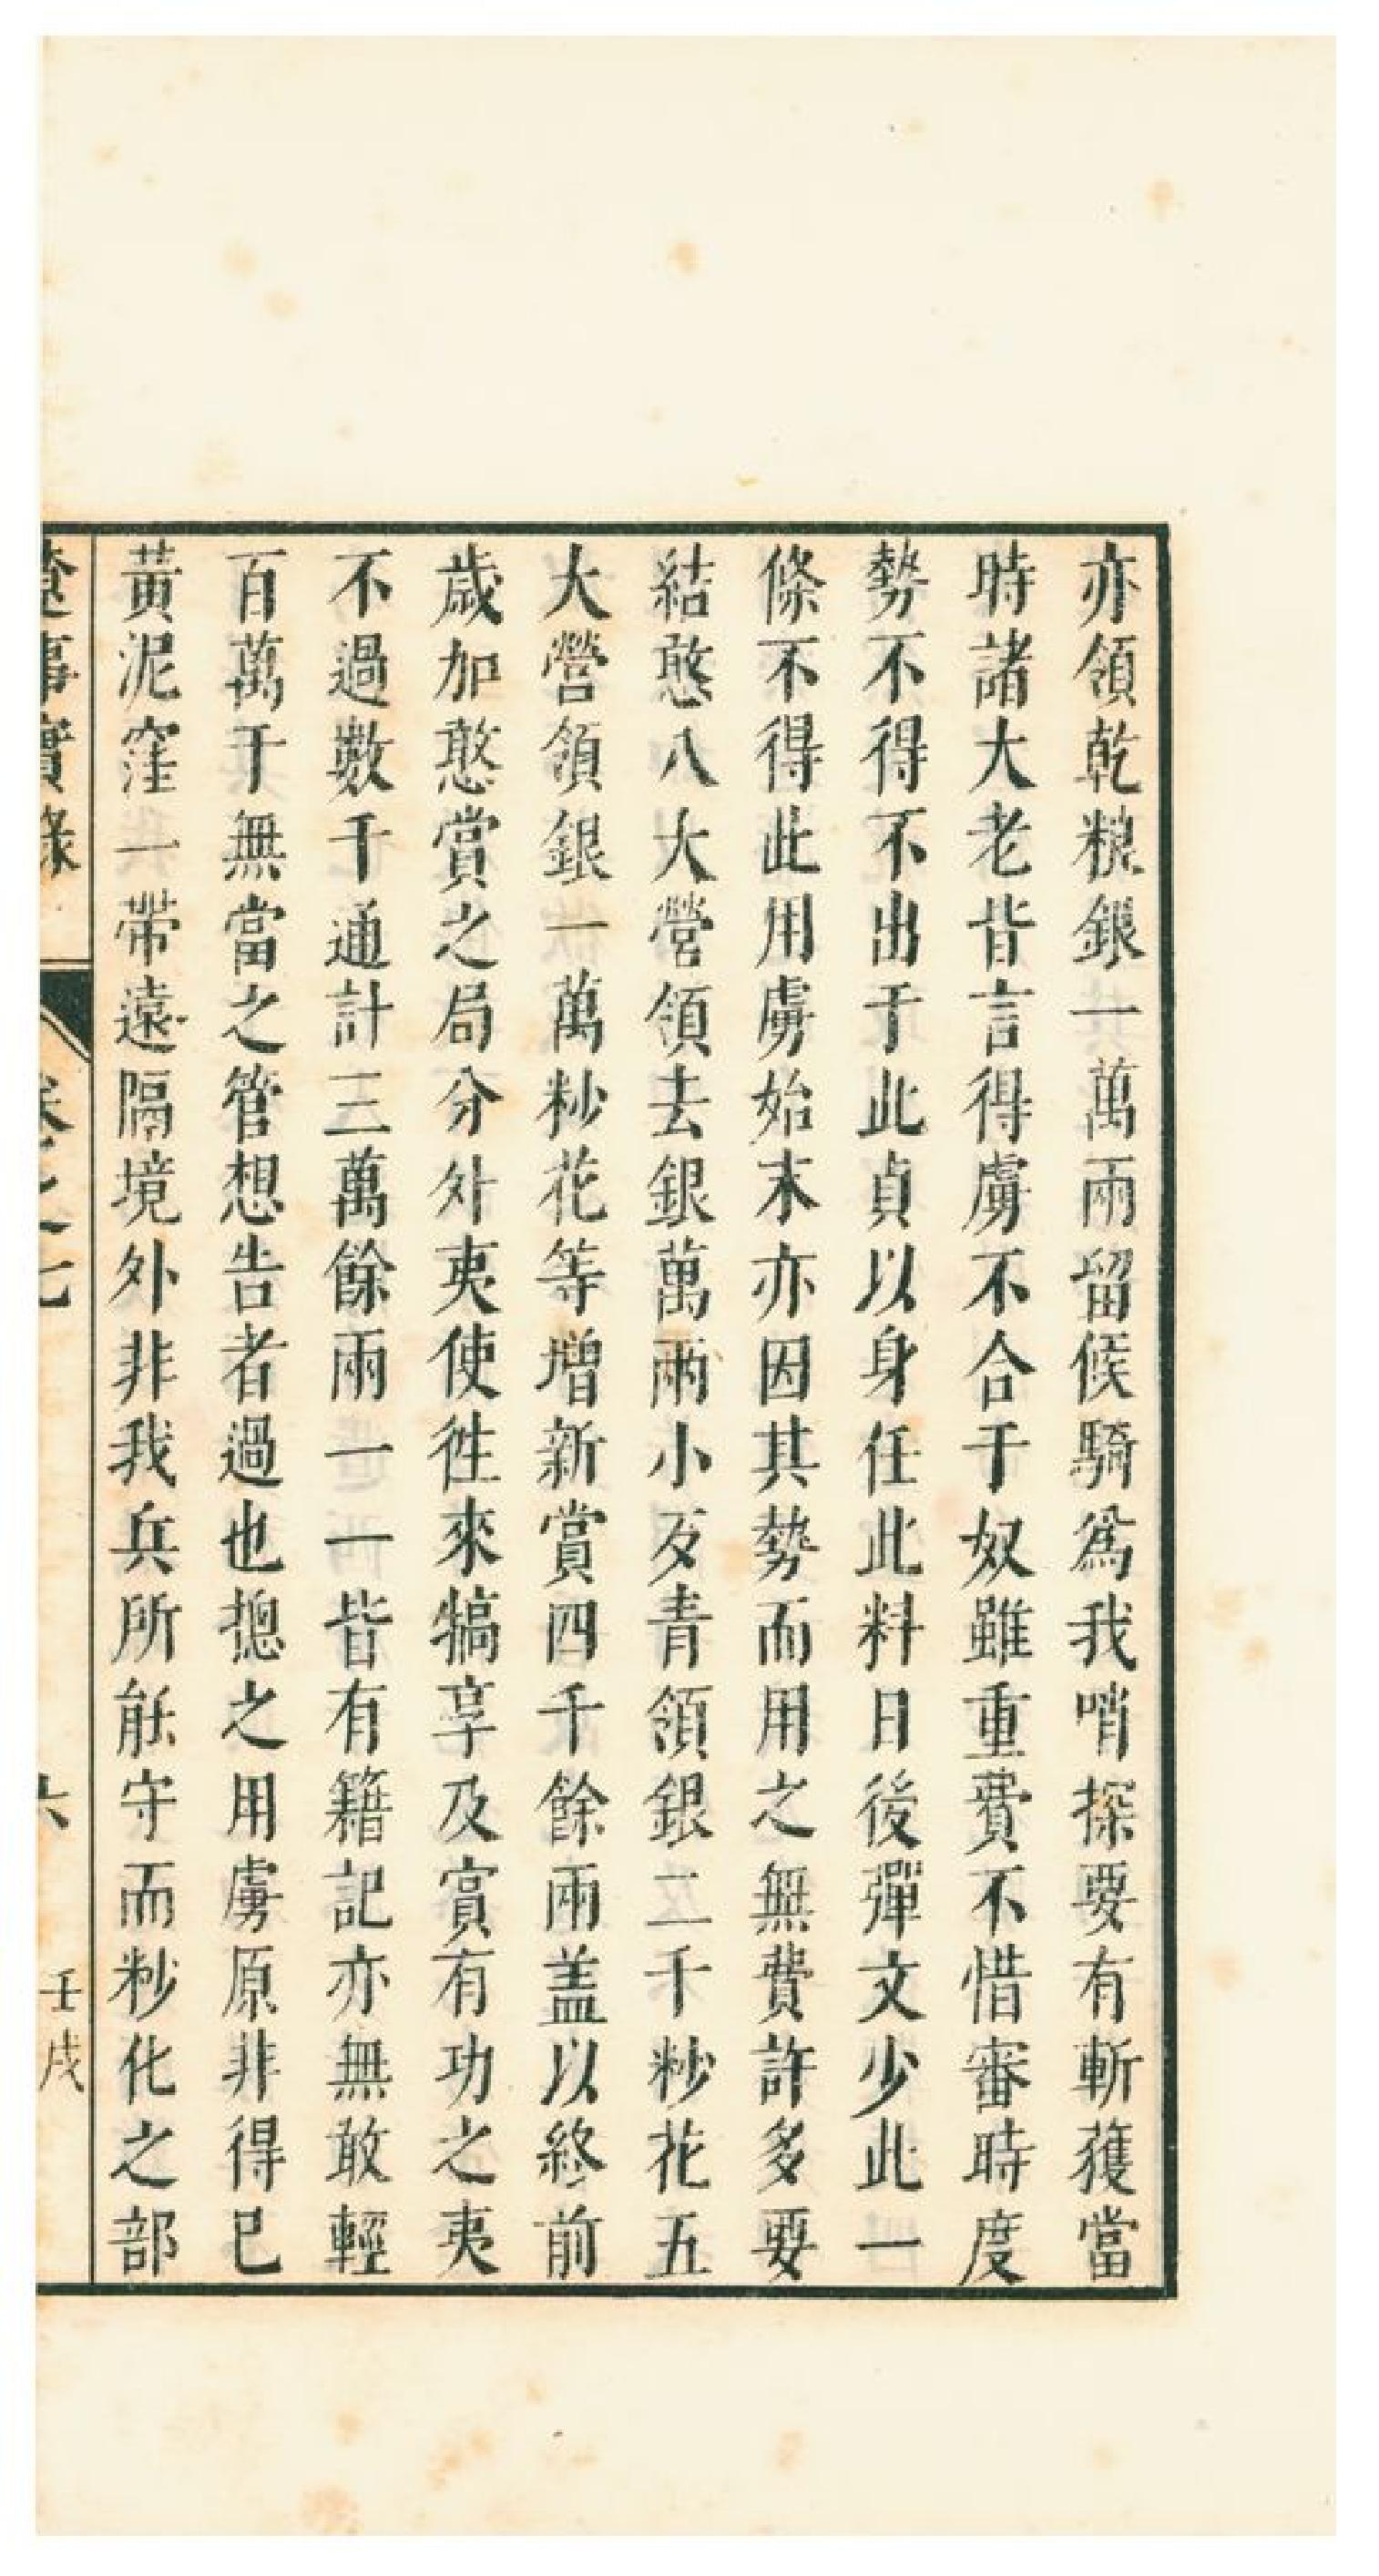 亦領乾糧銀一萬兩留候騎為我哨探要有斬獲當
時諸大老皆言得虜不合于奴雖重費不惜審時度
勢不得不出于此貞以身任此料日後彈文少此一
條不得此用虜始末亦因其勢而用之無費許多要
結憨八大營領去銀萬兩小歹青領銀二千粆花五
大營領銀一萬粆花等增新賞四千餘兩盖以終前
歲加憨賞之局分外夷使徃來犒享及賞有功之夷
不過數千通計三萬餘兩一一皆有籍記亦無敢輕
百萬于無當之管想告者過也摠之用虜原非得已
黃泥窪一帶遠隔境外非我兵所能守而粆化之部
遼事實錄 卷之七 六 壬戌